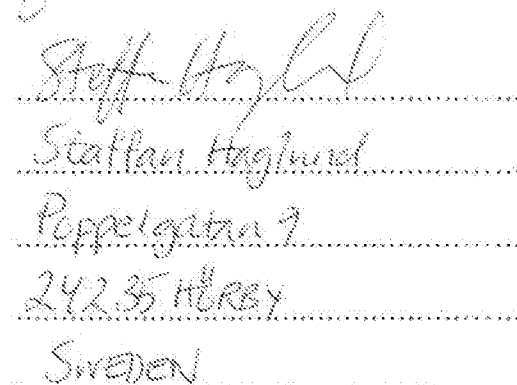 Staffan Haglund
Staffan Haglund
Poppelgatan 9
24235 HÖRBY
SWEDEN